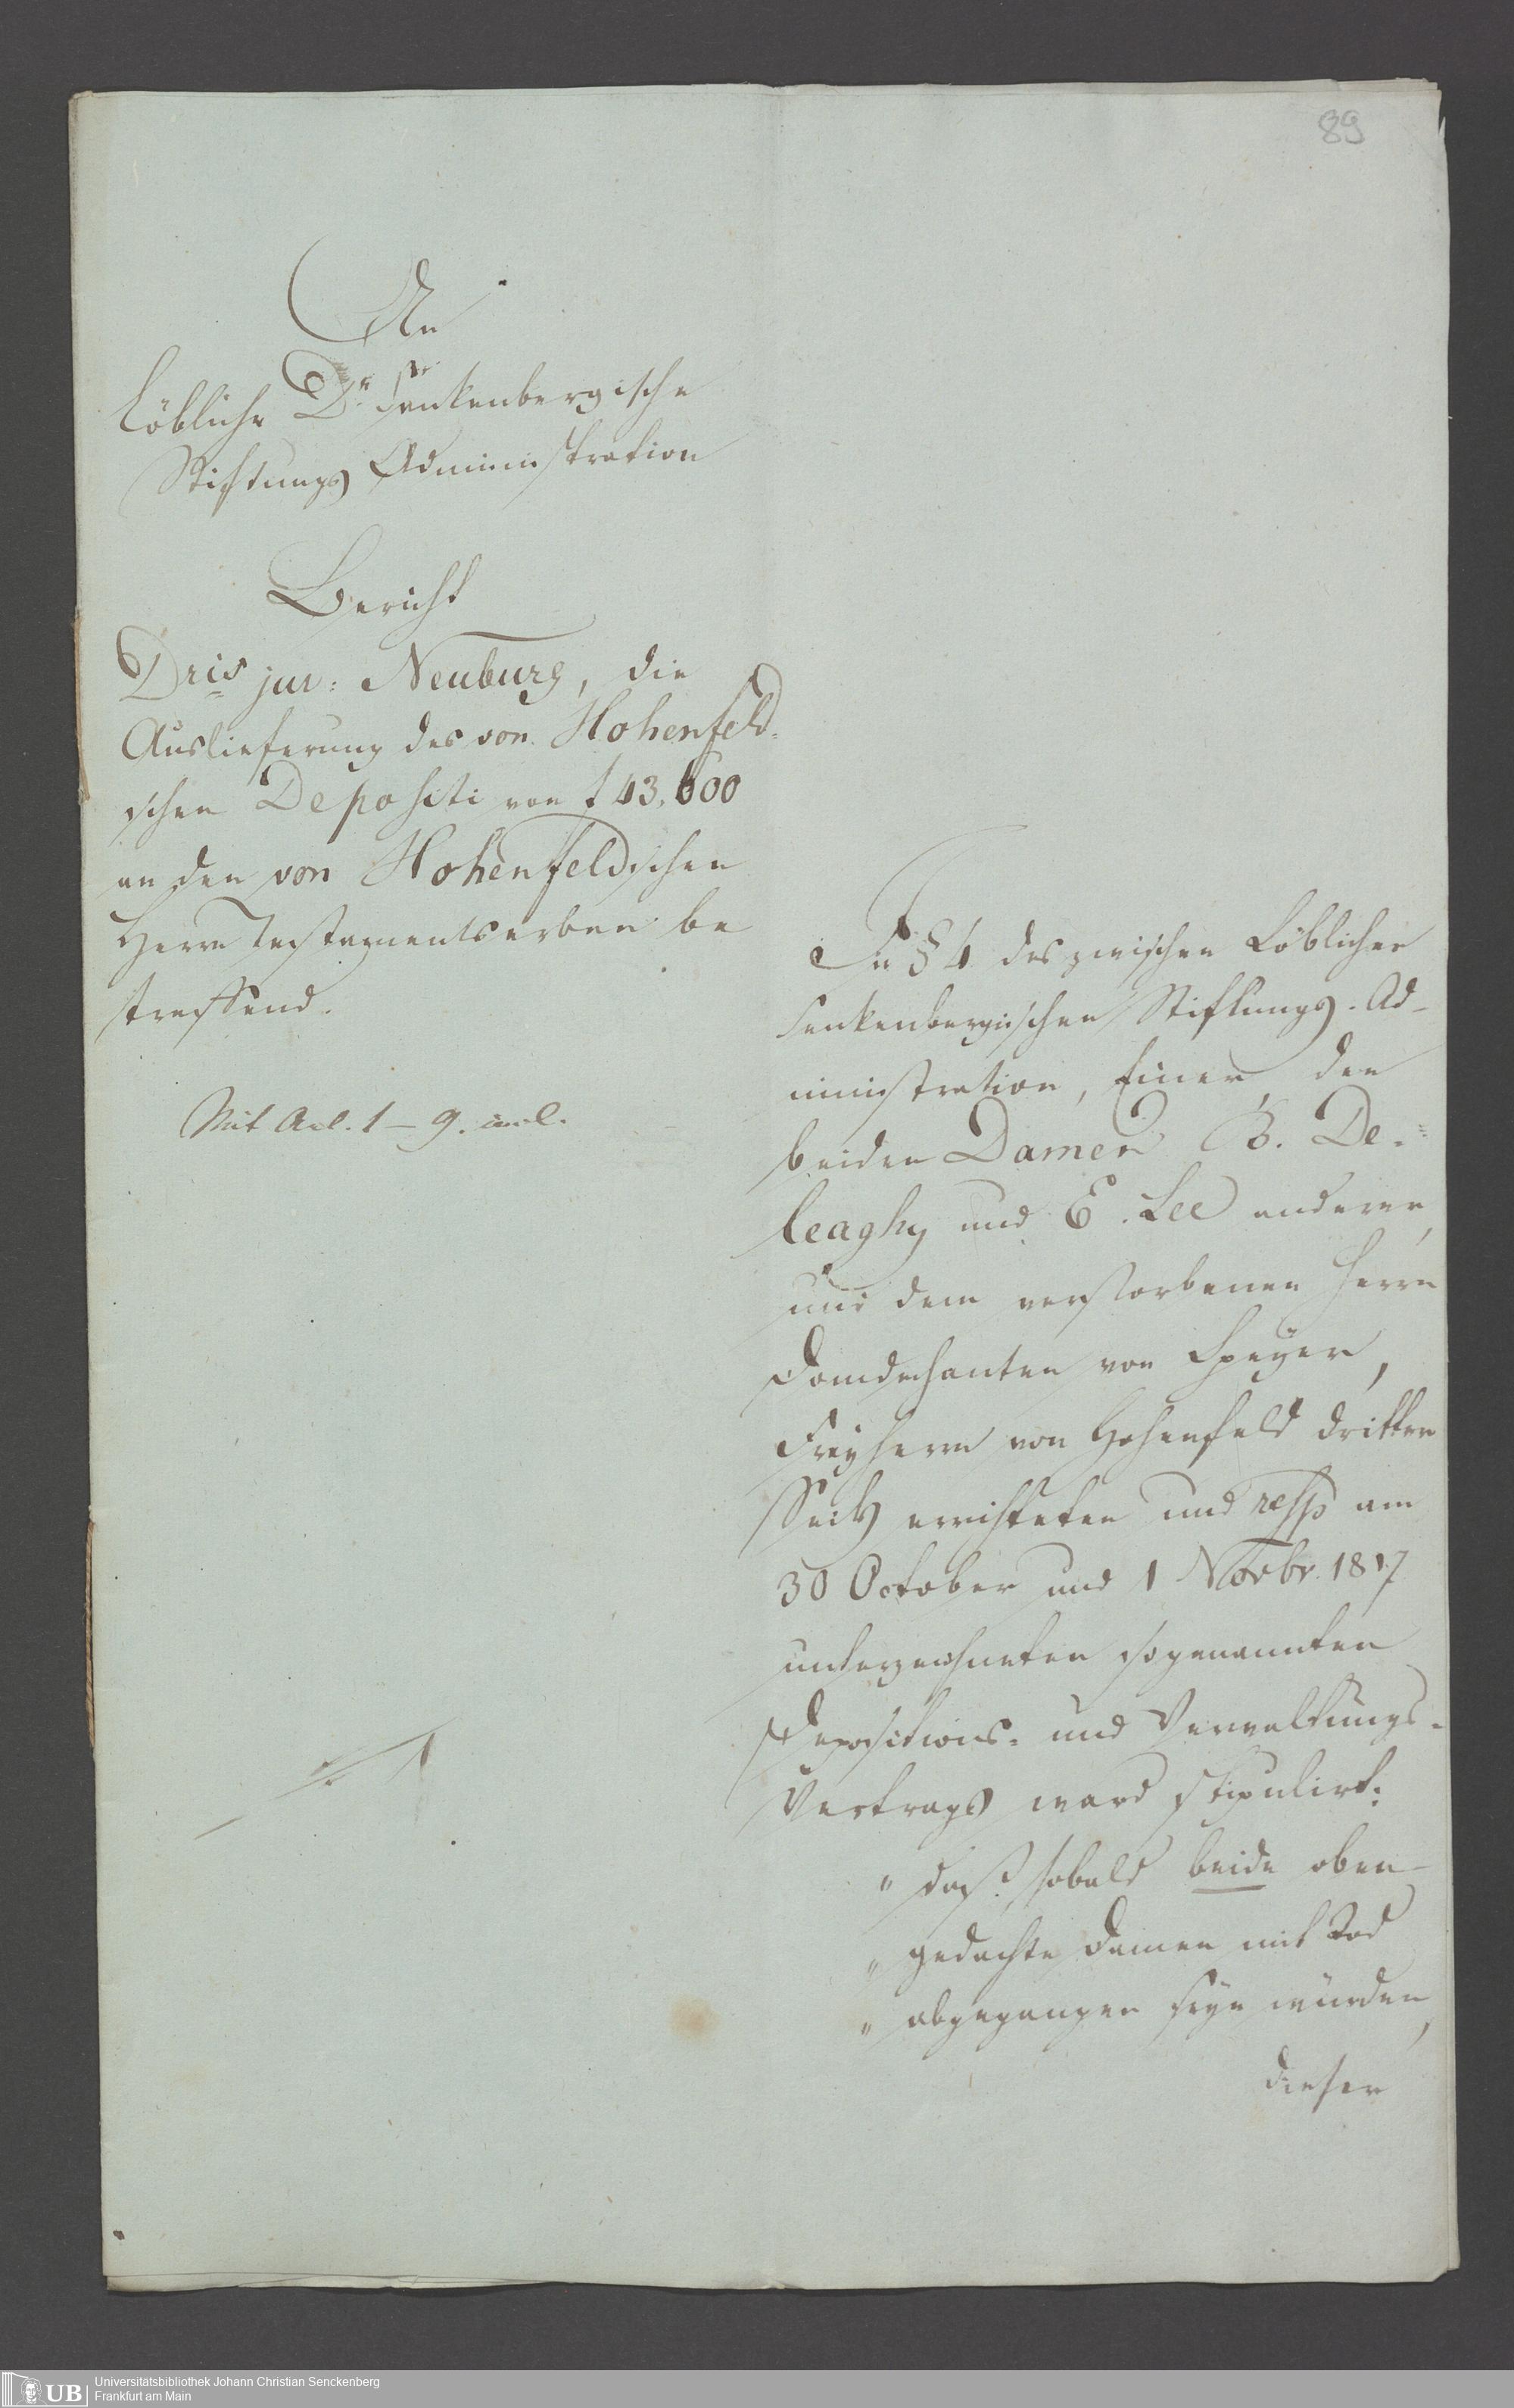 89
An
Löbliche Dr. Senkenbergische
Stiftungs Administration
Bericht
Dris jur: Neuburg, die
Auslieferung des von Hohenfeld-
schen Depositi von f 43,600
an den von Hohenfeldschen
Herrn Testamentserben be
treffend.
Mit Anl. 1 – 9. incl.
In § 4 des zwischen Löblicher
Senkenbergischen Stiftungs-Ad-
ministration, Einer, den
beiden Damen B. De-
leaghy und E. Lee anderer,
und dem verstorbenen Herrn
Domdechanten von Speyer,
Freyherrn von Hohenfeld dritter
Seits errichteten und resp am
30 October und 1 Novbr. 1817
unterzeichneten sogenannten
Depositions- und Verwaltungs-
Vertrags ward stipulirt:
„ daß, sobald beide oben-
„ gedachte Damen mit Tod
„ abgegangen seyn würden,
dieser
UB
Universitätsbibliothek Johann Christian Senckenberg
Frankfurt am Main